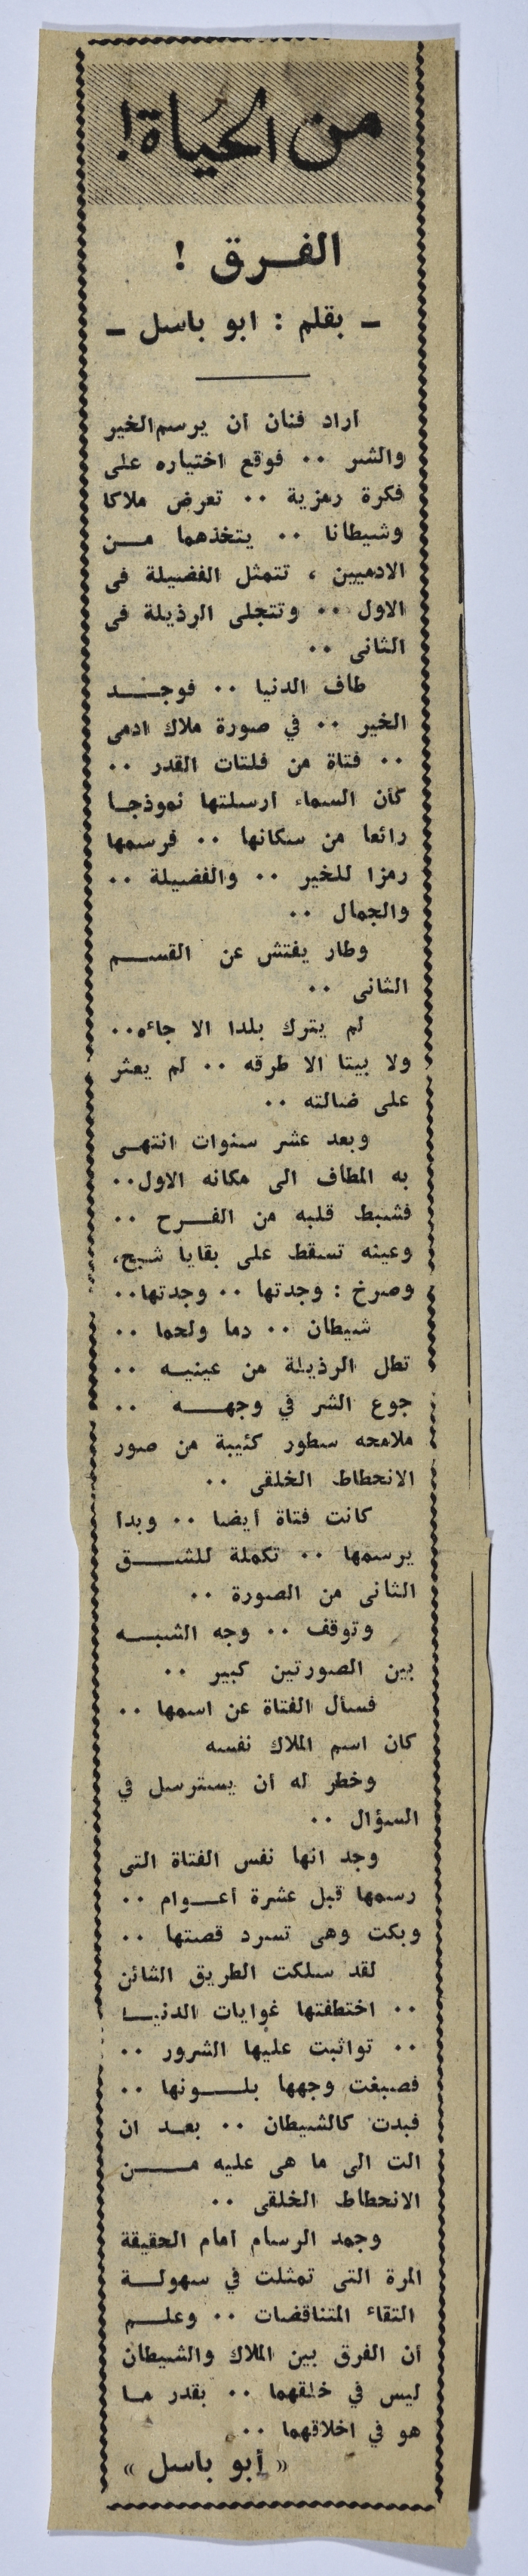 من الحياة!
الفرق !
ـ بقلم : ابو باسل ـ
اراد فنان ان يرسم الخير
والشر .. فوقع اختياره على
فكرة رمزية .. تعرض ملاكا
وشيطانا .. يتخذهما من
الادميين ، تتمثل الفضيلة فى
الاول .. وتتجلى الرذيلة فى
الثانى ..
طاف الدنيا .. فوجد
الخير .. في صورة ملاك ادمى
.. فتاة من فلتات القدر ..
كأن السماء ارسلتها نموذجا
رائعا من سكانها .. فرسمها
رمزا للخير .. والفضيلة ..
والجمال ..
وطار يفتش عن القسم
الثانى ..
لم يترك بلدا الا جاءه..
ولا بيتا الا طرقه .. لم يعثر
على ضالته ..
وبعد عشر سنوات انتهى
به المطاف الى مكانه الاول..
فشبط قلبه من الفرح ..
وعينه تسقط على بقايا شبح،
وصرخ : وجدتها .. وجدتها..
شيطان .. دما ولحما ..
تطل الرذيلة من عينيه ..
جوع الشر في وجهه ..
ملامحه سطور كئيبة من صور
الانحطاط الخلقى ..
كانت فتاة أيضا .. وبدا
يرسمها .. تكملة للشق
الثانى من الصورة ..
وتوقف .. وجه الشبه
بين الصورتين كبير ..
فسأل الفتاة عن اسمها ..
كان اسم الملاك نفسه
وخطر له ان يسترسل في
السؤال ..
وجد انها نفس الفتاة التى
رسمها قبل عشرة أعوام ..
وبكت وهى تسرد قصتها ..
لقد سلكت الطريق الشائن
.. اختطفتها غوايات الدنيا
.. تواثبت عليها الشرور ..
فصبغت وجهها بلونها ..
فبدت كالشيطان .. بعد ان
الت الى ما هى عليه من
الانحطاط الخلقى ..
وجمد الرسام امام الحقيقة
المرة التى تمثلت في سهولة
التقاء المتناقضات .. وعلم
ان الفرق بين الملاك والشيطان
ليس في خلقهما .. بقدر ما
هو في اخلاقهما ..
« أبو باسل »